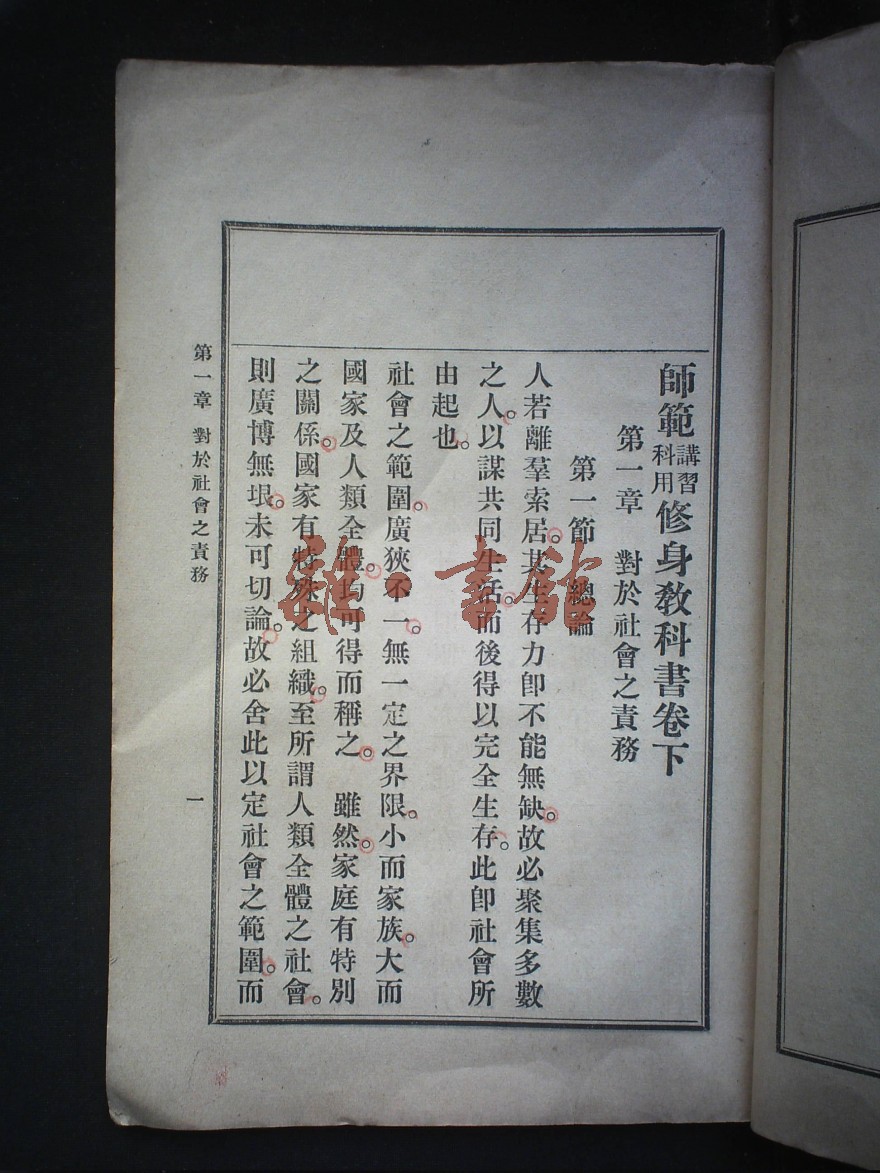 師範講習科用修身教科書卷下
第一章　對於社會之責務
第一節　總論
人若離羣索居。其生存力卽不能無缺。故必聚集多數
之人。以謀共同生活。而後得以完全生存。此卽社會所
由起也。
社會之範圍。廣狹不一。無一定之界限。小而家族。大而
國家及人類全體。均可得而稱之。雖然。家庭有特別
之關係。國家有特殊之組織。至所謂人類全體之社會。
則廣博無垠。未可切論。故必舍此以定社會之範圍。而
第一章　對於社會之責務
一
雜·書館